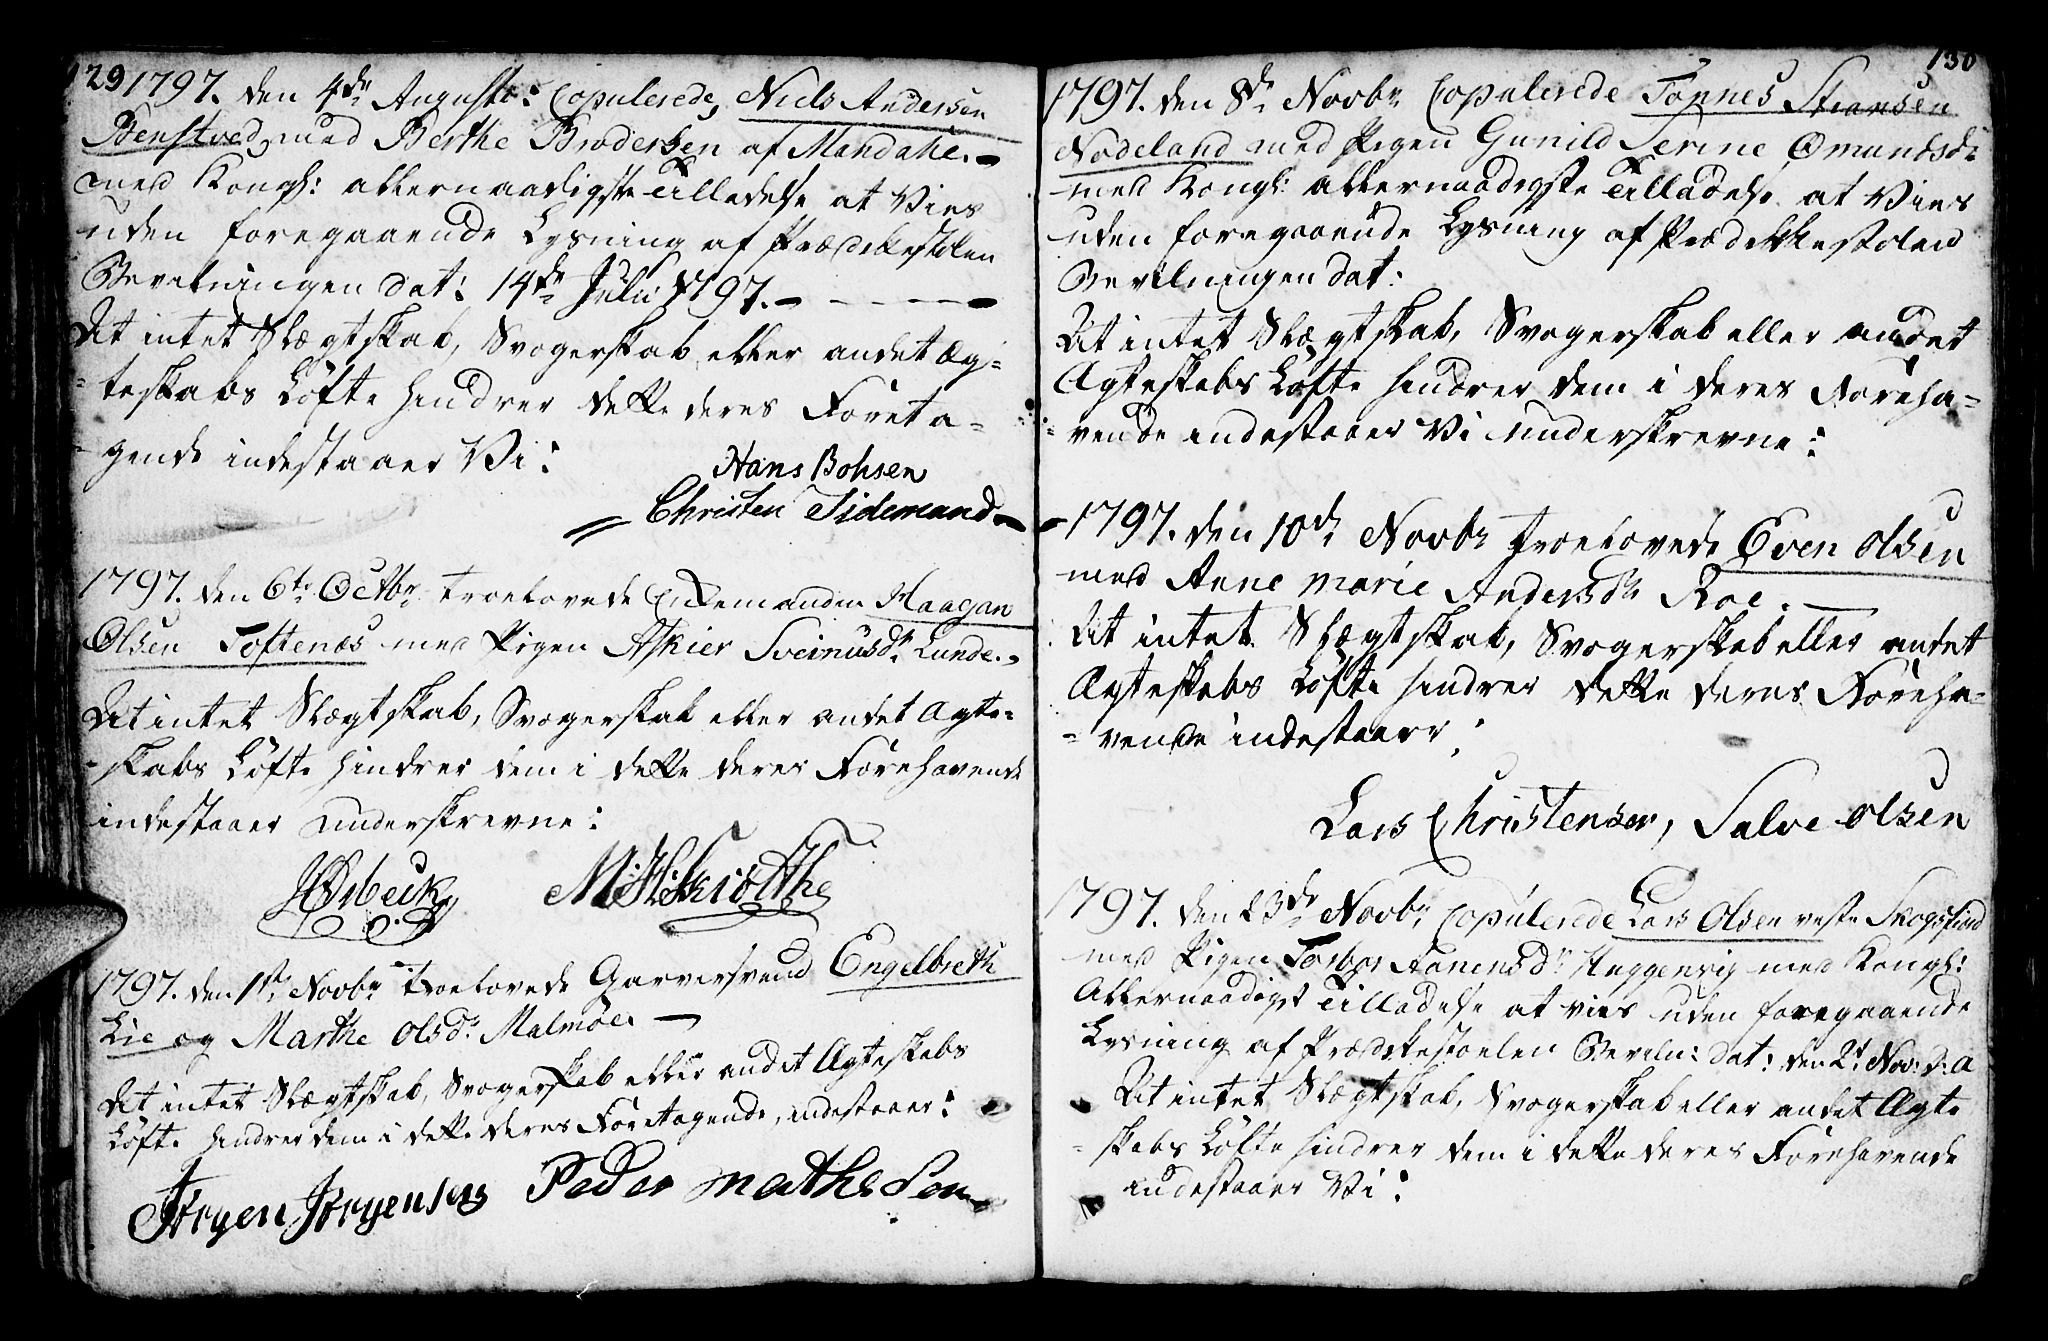 129
1797. den 4de Augusto: Copulerede, Niels Andersen
Benstved, med Berthe Brodersen af Mandahl.
med Kongl: allernaadigste Tilladelse at Vies
uden foregaaende Lysning af Prædikestolen
Bevilningen dat: 14de Julii 1797.
At intet Slægtskab, Svogerskab eller andet Æg-
teskabs Løfte hindrer dette deres Foreta-
gende indestaaer Vi:
Hans Bohsen
Christen Tidemand
1797. den 6te Octbr. troelovede Enkemanden Haagen
Olsen Toftenæs med Pigen Askier Sveinusdr. Lunde.
At intet Slægtskab, Svogerskab eller andet Ægte-
skabs Løfte hindrer dem i dette deres Forehavende
indestaaer underskrevne:
1797. den 1ste Novbr. troelovede Garversvend Engelbreth
Lie og Marthe Olsdr. Malmøe.
At intet Slægtskab, Svogerskab eller andet Ægteskabs
Løfte hindrer dem i dette deres Foretagende, indestaaer:
Jørgen Jørgensen Peder Mathesen
130
1797. den 8de Novbr. Copulerede Tønnes
Nodeland med Pigen Gunild Serine Omundsdr
med Kongl: allernaadigste Tilladelse at Vies
uden foregaaende Lysning af Prædikkestolen
Bevilningen dat:
At intet Slægtskab, Svogerskab eller andet
Ægteskabs Løfte hindrer dem i deres Foreha-
vende indestaaer Vi underskrevne:
1797. den 10de Novbr. troelovede Even Olsen
med Anne Marie Andersdr. Roe.
At intet Slægtskab, Svogerskab eller andet
Ægteskabs Løfte hindrer dette deres Foreha-
vende indestaaer:
Lars Christensen, Salve Olsen
1797. den 23de Novbr. Copulerede Lars Olsen vestre Skogsfiord
med Pigen Torbor Aanensdr. Heggenvig med Kongl:
Allernaadigst Tilladelse at vies uden foregaaende
Lysning af Prædikestoelen Beviln: dat: den 2t Nov: d: A
At intet Slægtskab, Svogerskab eller andet Ægte
skabs Løfte hindrer dem i dette deres Forehavende
indestaaer Vi: